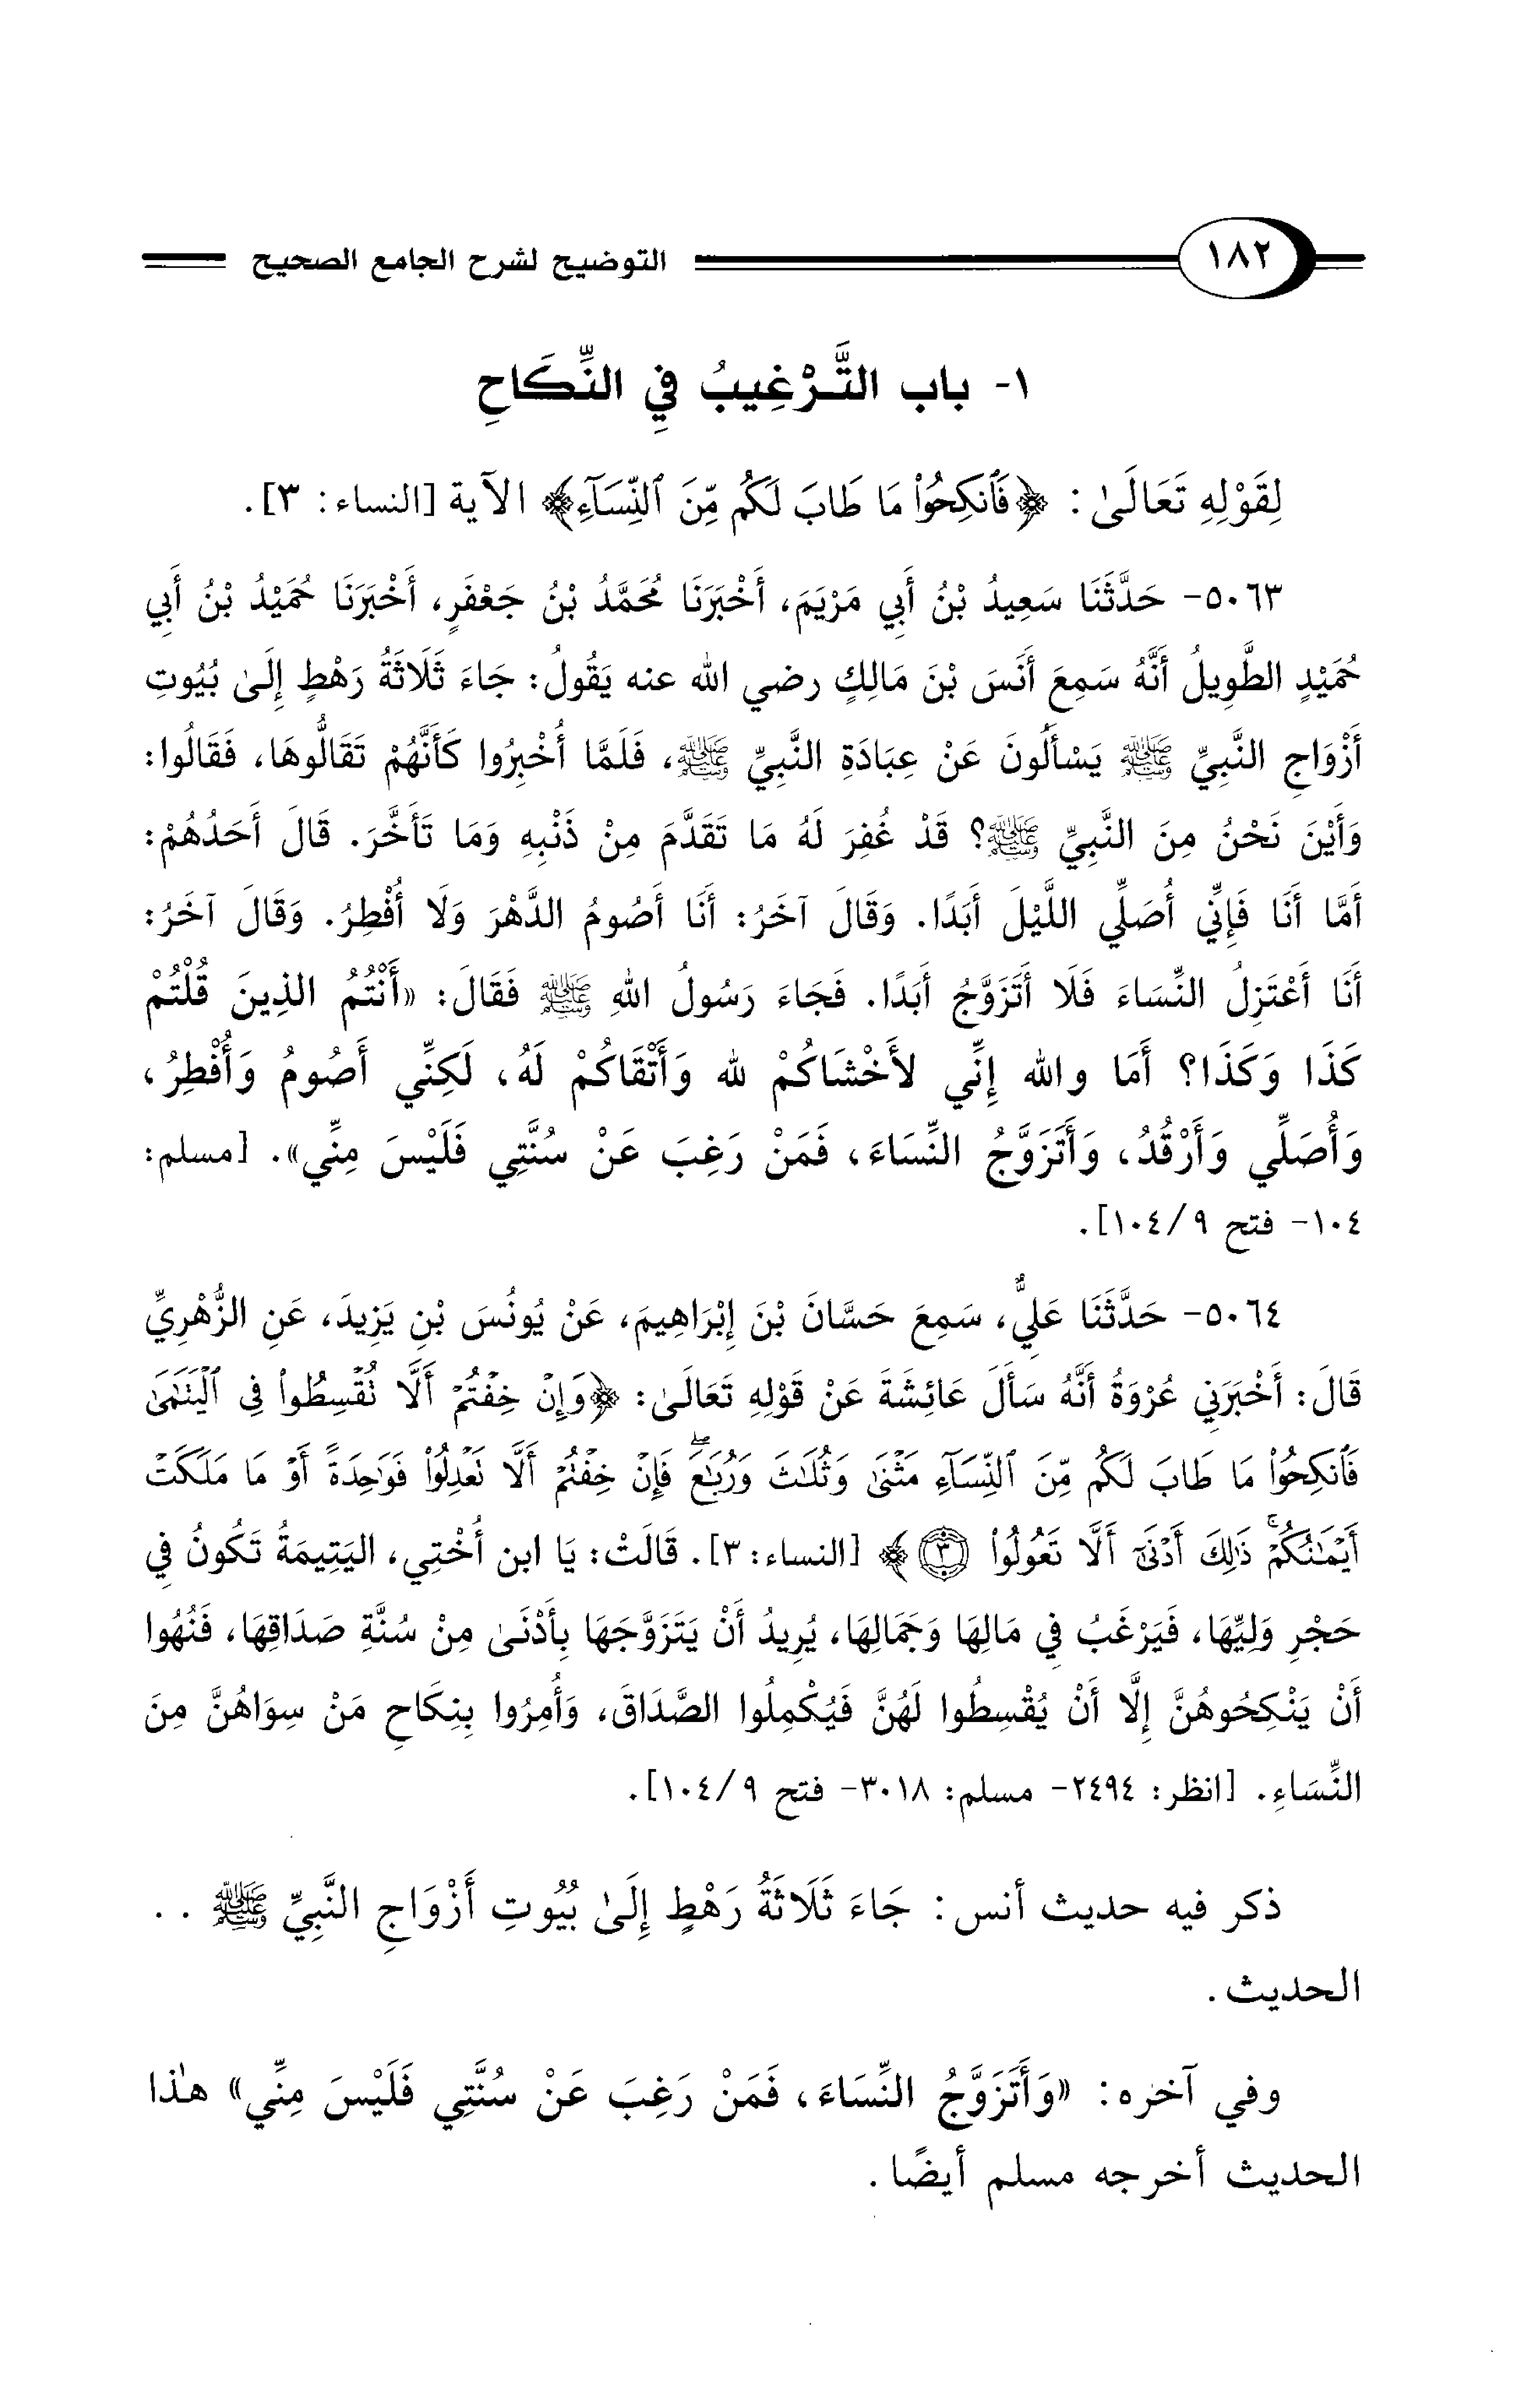 ١٨٢ التوضيح لشرح الجامع الصحيح
١- باب التَّرْغِيبُ فِي النِّكَاحِ
لِقَوْلِهِ تَعَالَىٰ: ﴿فَٱنكِحُوا۟ مَا طَابَ لَكُم مِّنَ ٱلنِّسَآءِ﴾ الآية [النساء: ٣].
٥٠٦٣- حَدَّثَنَا سَعِيدُ بْنُ أَبِي مَرْيَمَ، أَخْبَرَنَا مُحَمَّدُ بْنُ جَعْفَرٍ، أَخْبَرَنَا حُمَيْدُ بْنُ أَبِي
حُمَيْدٍ الطَّوِيلُ أَنَّهُ سَمِعَ أَنَسَ بْنَ مَالِكٍ رضي الله عنه يَقُولُ: جَاءَ ثَلَاثَةُ رَهْطٍ إِلَىٰ بُيُوتِ
أَزْوَاجِ النَّبِيِّ ﷺ يَسْأَلُونَ عَنْ عِبَادَةِ النَّبِيِّ ﷺ، فَلَمَّا أُخْبِرُوا كَأَنَّهُمْ تَقَالُّوهَا، فَقَالُوا:
وَأَيْنَ نَحْنُ مِنَ النَّبِيِّ ﷺ؟ قَدْ غُفِرَ لَهُ مَا تَقَدَّمَ مِنْ ذَنْبِهِ وَمَا تَأَخَّرَ. قَالَ أَحَدُهُمْ:
أَمَّا أَنَا فَإِنِّي أُصَلِّي اللَّيْلَ أَبَدًا. وَقَالَ آخَرُ: أَنَا أَصُومُ الدَّهْرَ وَلَا أُفْطِرُ. وَقَالَ آخَرُ:
أَنَا أَعْتَزِلُ النِّسَاءَ فَلَا أَتَزَوَّجُ أَبَدًا. فَجَاءَ رَسُولُ اللهِ ﷺ فَقَالَ: «أَنْتُمُ الذِينَ قُلْتُمْ
كَذَا وَكَذَا؟ أَمَا والله إِنِّي لأَخْشَاكُمْ لله وَأَتْقَاكُمْ لَهُ، لَكِنِّي أَصُومُ وَأُفْطِرُ،
وَأُصَلِّي وَأَرْقُدُ، وَأَتَزَوَّجُ النِّسَاءَ، فَمَنْ رَغِبَ عَنْ سُنَّتِي فَلَيْسَ مِنِّي». [مسلم:
١٠٤- فتح ٩/ ١٠٤].
٥٠٦٤- حَدَّثَنَا عَلِيٌّ، سَمِعَ حَسَّانَ بْنَ إِبْرَاهِيمَ، عَنْ يُونُسَ بْنِ يَزِيدَ، عَنِ الزُّهْرِيِّ
قَالَ: أَخْبَرَنِي عُرْوَةُ أَنَّهُ سَأَلَ عَائِشَةَ عَنْ قَوْلِهِ تَعَالَىٰ: ﴿وَإِنْ خِفْتُمْ أَلَّا تُقْسِطُوا۟ فِى ٱلْيَتَٰمَىٰ
فَٱنكِحُوا۟ مَا طَابَ لَكُم مِّنَ ٱلنِّسَآءِ مَثْنَىٰ وَثُلَٰثَ وَرُبَٰعَ ۖ فَإِنْ خِفْتُمْ أَلَّا تَعْدِلُوا۟ فَوَٰحِدَةً أَوْ مَا مَلَكَتْ
أَيْمَٰنُكُمْ ۚ ذَٰلِكَ أَدْنَىٰٓ أَلَّا تَعُولُوا۟ ٣﴾ [النساء: ٣]. قَالَتْ: يَا ابن أُخْتِي، اليَتِيمَةُ تَكُونُ فِي
حَجْرِ وَلِيِّهَا، فَيَرْغَبُ فِي مَالِهَا وَجَمَالِهَا، يُرِيدُ أَنْ يَتَزَوَّجَهَا بِأَدْنَىٰ مِنْ سُنَّةِ صَدَاقِهَا، فَنُهُوا
أَنْ يَنْكِحُوهُنَّ إِلَّا أَنْ يُقْسِطُوا لَهُنَّ فَيُكْمِلُوا الصَّدَاقَ، وَأُمِرُوا بِنِكَاحِ مَنْ سِوَاهُنَّ مِنَ
النِّسَاءِ. [انظر: ٢٤٩٤- مسلم: ٣٠١٨- فتح ٩/ ١٠٤].
ذكر فيه حديث أنس: جَاءَ ثَلَاثَةُ رَهْطٍ إِلَىٰ بُيُوتِ أَزْوَاجِ النَّبِيِّ ﷺ . .
الحديث.
وفي آخره: «وَأَتَزَوَّجُ النِّسَاءَ، فَمَنْ رَغِبَ عَنْ سُنَّتِي فَلَيْسَ مِنِّي» هٰذا
الحديث أخرجه مسلم أيضًا.